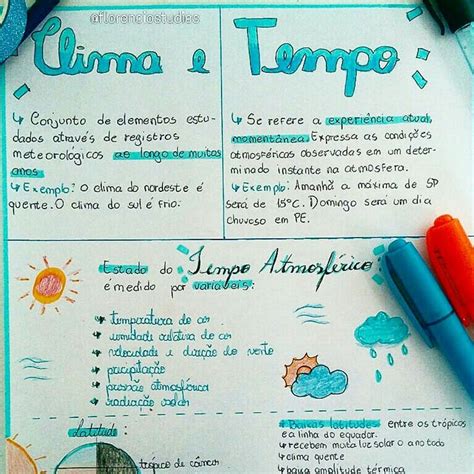 @florenciastudies
Clima e
Tempo:
↳ Conjunto de elementos estu-
dados através de registros
meteorológicos ao longo de muitos
anos
↳ Exemplo: O clima do nordeste é
quente. O clima do sul é frio.
↳ Se refere a experiência atual,
momentânea. Expressa as condições
atmosféricas observadas em um deter-
minado instante na atmosfera.
↳ Exemplo: Amanhã a máxima de SP
será de 15°C. Domingo será um dia
chuvoso em PE.
Estado do Tempo Atmosférico
é medido por variáveis:
temperatura do ar
umidade relativa do ar
velocidade e direção do vento
precipitação
pressão atmosférica
radiação solar
Latitude:
trópico de câncer
#Baixas latitudes: entre os trópicos
e a linha do equador.
↳ recebem muita luz solar o ano todo
↳ clima quente
↳ baixa amplitude térmica